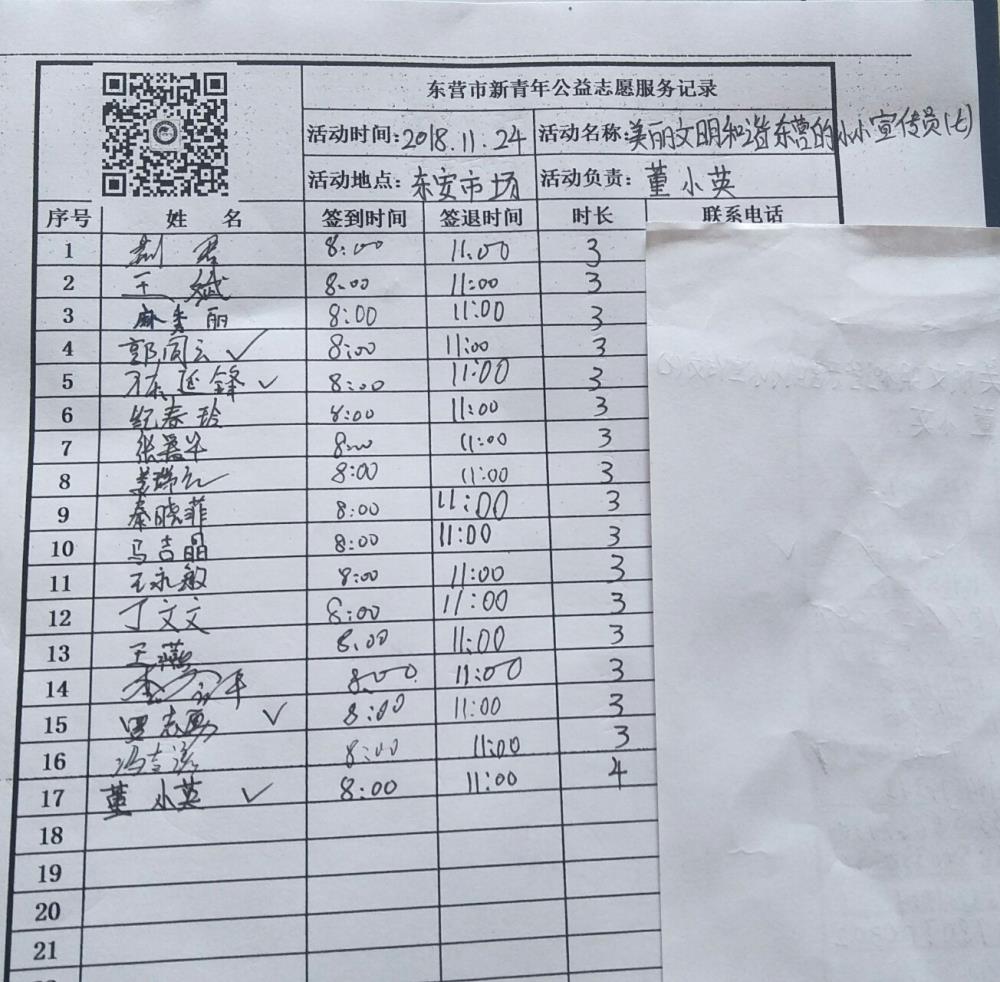 东营市新青年公益志愿服务记录
活动时间:2018.11.24 活动名称:美丽文明和谐东营的小小宣传员(七)
活动地点:东安市场 活动负责:董小英
序号 姓名 签到时间 签退时间 时长 联系电话
1 君 8:00 11:00 3
2 王斌 8:00 11:00 3
3 麻秀丽 8:00 11:00 3
4 郭同云 ✓ 8:00 11:00 3
5 延锋 ✓ 8:00 11:00 3
6 纪春玲 8:00 11:00 3
7 张 8:00 11:00 3
8 姜瑞红 8:00 11:00 3
9 秦晓菲 8:00 11:00 3
10 马吉晶 8:00 11:00 3
11 王永敏 8:00 11:00 3
12 丁文文 8:00 11:00 3
13 王燕 8:00 11:00 3
14 8:00 11:00 3
15 罗志勇 ✓ 8:00 11:00 3
16 冯 8:00 11:00 3
17 董小英 ✓ 8:00 11:00 4
18
19
20
21